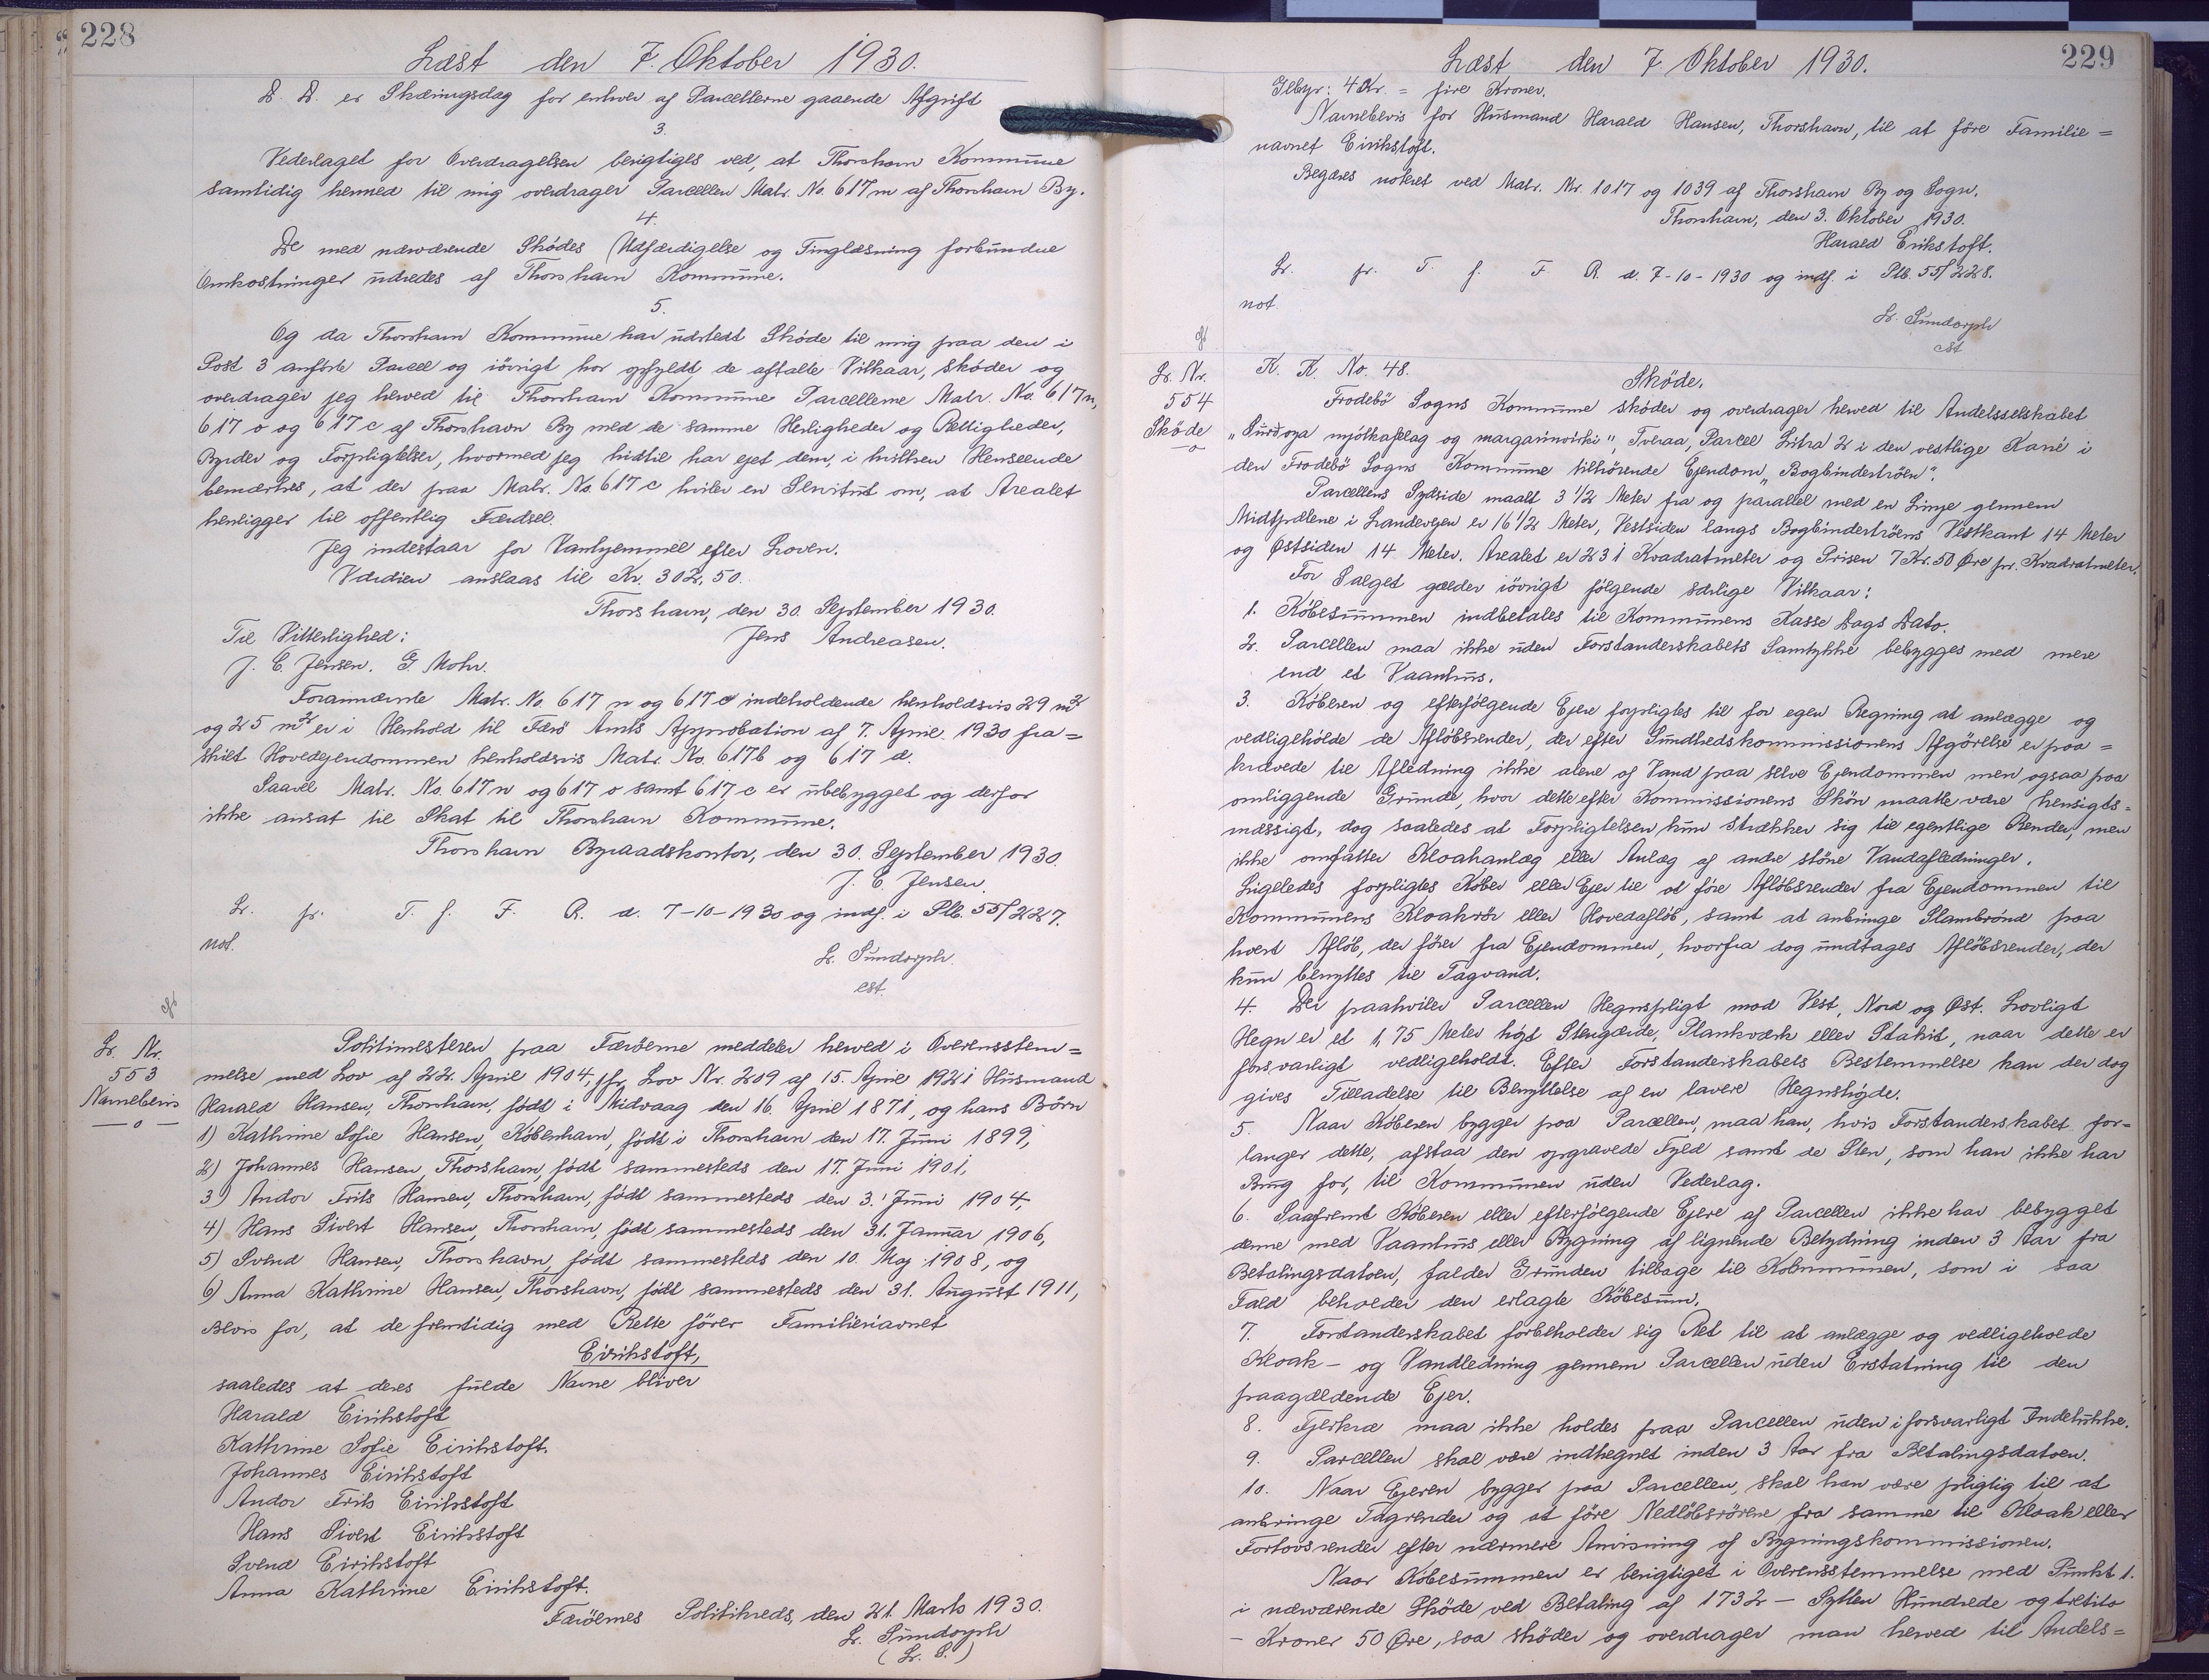 228
Læst den 7. Oktober 1930.
D. D. er Skæringsdag for enhver af Parcellerne gaaende Afgift
3.
Vederlaget for Overdragelsen berigtiges ved, at Thorshavn Kommune
samtidig hermed til mig overdrager Parcellen Matr. No. 617m af Thorshavn By.
4.
De med nærværende Skødes Udfærdigelse og Tinglæsning forbundne
Omkostninger udredes af Thorshavn Kommune.
5.
Og da Thorshavn Kommune har udstedt Skøde til mig paa den i
Post 3 anførte Parcel og iøvrigt har opfyldt de aftalte Vilkaar, skøder og
overdrager jeg herved til Thorshavn Kommune Parcellerne Matr. No. 617n,
617 o og 617 c af Thorshavn By med de samme Herligheder og Rettigheder,
Byrder og Forpligtelser, hvormed jeg hidtil har ejet dem, i hvilken Henseende
bemærkes, at der paa Matr. No. 617 c hviler en Servitut om, at Arealet
henligger til offentlig Færdsel.
Jeg indestaar for Vanhjemmel efter Loven.
Værdien anslaas til Kr. 302,50.
Thorshavn, den 30. September 1930.
Til Vitterlighed: Jens Andreasen.
J. C. Jensen. G. Mohr.
Forannævnte Matr. No. 617 n og 617 o indeholdende henholdsvis 29 m²
og 25 m² er i Henhold til Færø Amts Approbation af 7. April 1930 fra=
skilt Hovedejendommen henholdsvis Matr. No. 617b og 617 d.
Saavel Matr. No. 617 n og 617 o samt 617 c er ubebygget og derfor
ikke ansat til Skat til Thorshavn Kommune.
Thorshavn Byraadskontor, den 30. September 1930.
J. C. Jensen.
Lr. fr. T. f. F. R. d. 7-10-1930 og indf. i Ptb. 55/227.
not.
L. Sundorph.
cst.
Lr. Nr.
553
Navnebevis
— o —
Politimesteren paa Færøerne meddeler herved i Overensstem=
melse med Lov af 22. April 1904, jfr. Lov Nr. 209 af 15. April 1921 Husmand
Harald Hansen, Thorshavn, født i Midvaag den 16. April 1871, og hans Børn
1) Kathrine Sofie Hansen, København, født i Thorshavn den 17. Juni 1899,
2) Johannes Hansen, Thorshavn, født sammesteds den 17. Juni 1901,
3) Andor Frits Hansen, Thorshavn, født sammesteds den 3. Juni 1904,
4) Hans Sivert Hansen, Thorshavn, født sammesteds den 31. Januar 1906,
5) Svend Hansen, Thorshavn, født sammesteds den 10. Maj 1908, og
6) Anna Kathrine Hansen, Thorshavn, født sammesteds den 31. August 1911,
Bevis for, at de fremtidig med Rette fører Familienavnet
Eirikstoft,
saaledes at deres fulde Navne bliver
Harald Eirikstoft
Kathrine Sofie Eirikstoft.
Johannes Eirikstoft
Andor Frits Eirikstoft
Hans Sivert Eirikstoft
Svend Eirikstoft
Anna Kathrine Eirikstoft.
Færøernes Politikreds, den 21. Marts 1930.
L. Sundorph
(L. S.)
229
Læst den 7. Oktober 1930.
Gebyr: 4 Kr. = fire Kroner.
Navnebevis for Husmand Harald Hansen, Thorshavn, til at føre Familie=
navnet Eirikstoft.
Begæres noteret ved Matr. Nr 1017 og 1039 af Thorshavn By og Sogn.
Thorshavn, den 3. Oktober 1930.
Harald Erikstoft.
Lr. fr. T. f. F R. d. 7-10-1930 og indf. i Ptb. 55/228.
not.
L. Sundorph
cst
Lr. Nr.
554
Skøde
— o
K. K. No. 48.
Skøde.
Frodebø Sogns Kommune skøder og overdrager herved til Andelsselskabet
„Suðroya mjólkafelag og margarinvirki", Tveraa, Parcel Litra 2 i den vestlige Karré i
den Frodebø Sogns Kommune tilhørende Ejendom „Bogbindertrøen".
Parcellens Sydside maalt 3 1/2 Meter fra og parallel med en Linje gennem
Midtpælene i Landevejen er 16 1/2 Meter, Vestsiden langs Bogbindertrøens Vestkant 14 Meter
og Østsiden 14 Meter. Arealet er 231 Kvadratmeter og Prisen 7 Kr. 50 Øre pr. Kvadratmeter.
For Salget gælder iøvrigt følgende særlige Vilkaar:
1. Købesummen indbetales til Kommunens Kasse Dags Dato.
2. Parcellen maa ikke uden Forstanderskabets Samtykke bebygges med mere
end et Vaanhus.
3. Køberen og efterfølgende Ejere forpligtes til for egen Regning at anlægge og
vedligeholde de Afløbsrender, der efter Sundhedskommissionens Afgørelse er paa=
krævede til Afledning ikke alene af Vand paa selve Ejendommen men ogsaa paa
omliggende Grunde, hvor dette efter Kommissionens Skøn maatte være hensigts=
mæssigt, dog saaledes at Forpligtelsen kun strækker sig til egentlige Render, men
ikke omfatter Kloakanlæg eller Anlæg af andre større Vandafledninger.
Ligeledes forpligtes Køber eller Ejer til at føre Afløbsrender fra Ejendommen til
Kommunens Kloakrør eller Hovedafløb, samt at anbringe Slambrønd paa
hvert Afløb, der fører fra Ejendommen, hvorfra dog undtages Afløbsrender, der
kun benyttes til Tagvand.
4. Der paahviler Parcellen Hegnspligt mod Vest, Nord og Øst. Lovligt
Hegn er et 1,75 Meter højt Stengærde, Plankeværk eller Stakit, naar dette er
forsvarligt vedligeholdt. Efter Forstanderskabets Bestemmelse kan der dog
gives Tilladelse til Benyttelse af en lavere Hegnshøjde.
5. Naar Køberen bygger paa Parcellen, maa han, hvis Forstanderskabet for-
langer dette, afstaa den opgravede Fyld samt de Sten, som han ikke har
Brug for, til Kommunen uden Vederlag.
6. Saafremt Køberen eller efterfølgende Ejere af Parcellen ikke har bebygget
denne med Vaanhus eller Bygning af lignende Betydning inden 3 Aar fra
Betalingsdatoen, falder Grunden tilbage til Kommunen, som i saa
Fald beholder den erlagte Købesum.
7. Forstanderskabet forbeholder sig Ret til at anlægge og vedligeholde
Kloak- og Vandledning gennem Parcellen uden Erstatning til den
paagældende Ejer.
8. Fjerkræ maa ikke holdes paa Parcellen uden i forsvarligt Indelukke.
9. Parcellen skal være indhegnet inden 3 Aar fra Betalingsdatoen.
10. Naar Ejeren bygger paa Parcellen, skal han være pligtig til at
anbringe Tagrender og at føre Nedløbsrørene fra samme til Kloak eller
Fortovsrender efter nærmere Anvisning af Bygningskommissionen.
Naar Købesummen er berigtiget i Overensstemmelse med Punkt 1.
i nærværende Skøde ved Betaling af 1732 — Sytten Hundrede og treti to
— Kroner 50 Øre, saa skøder og overdrager man herved til Andels=